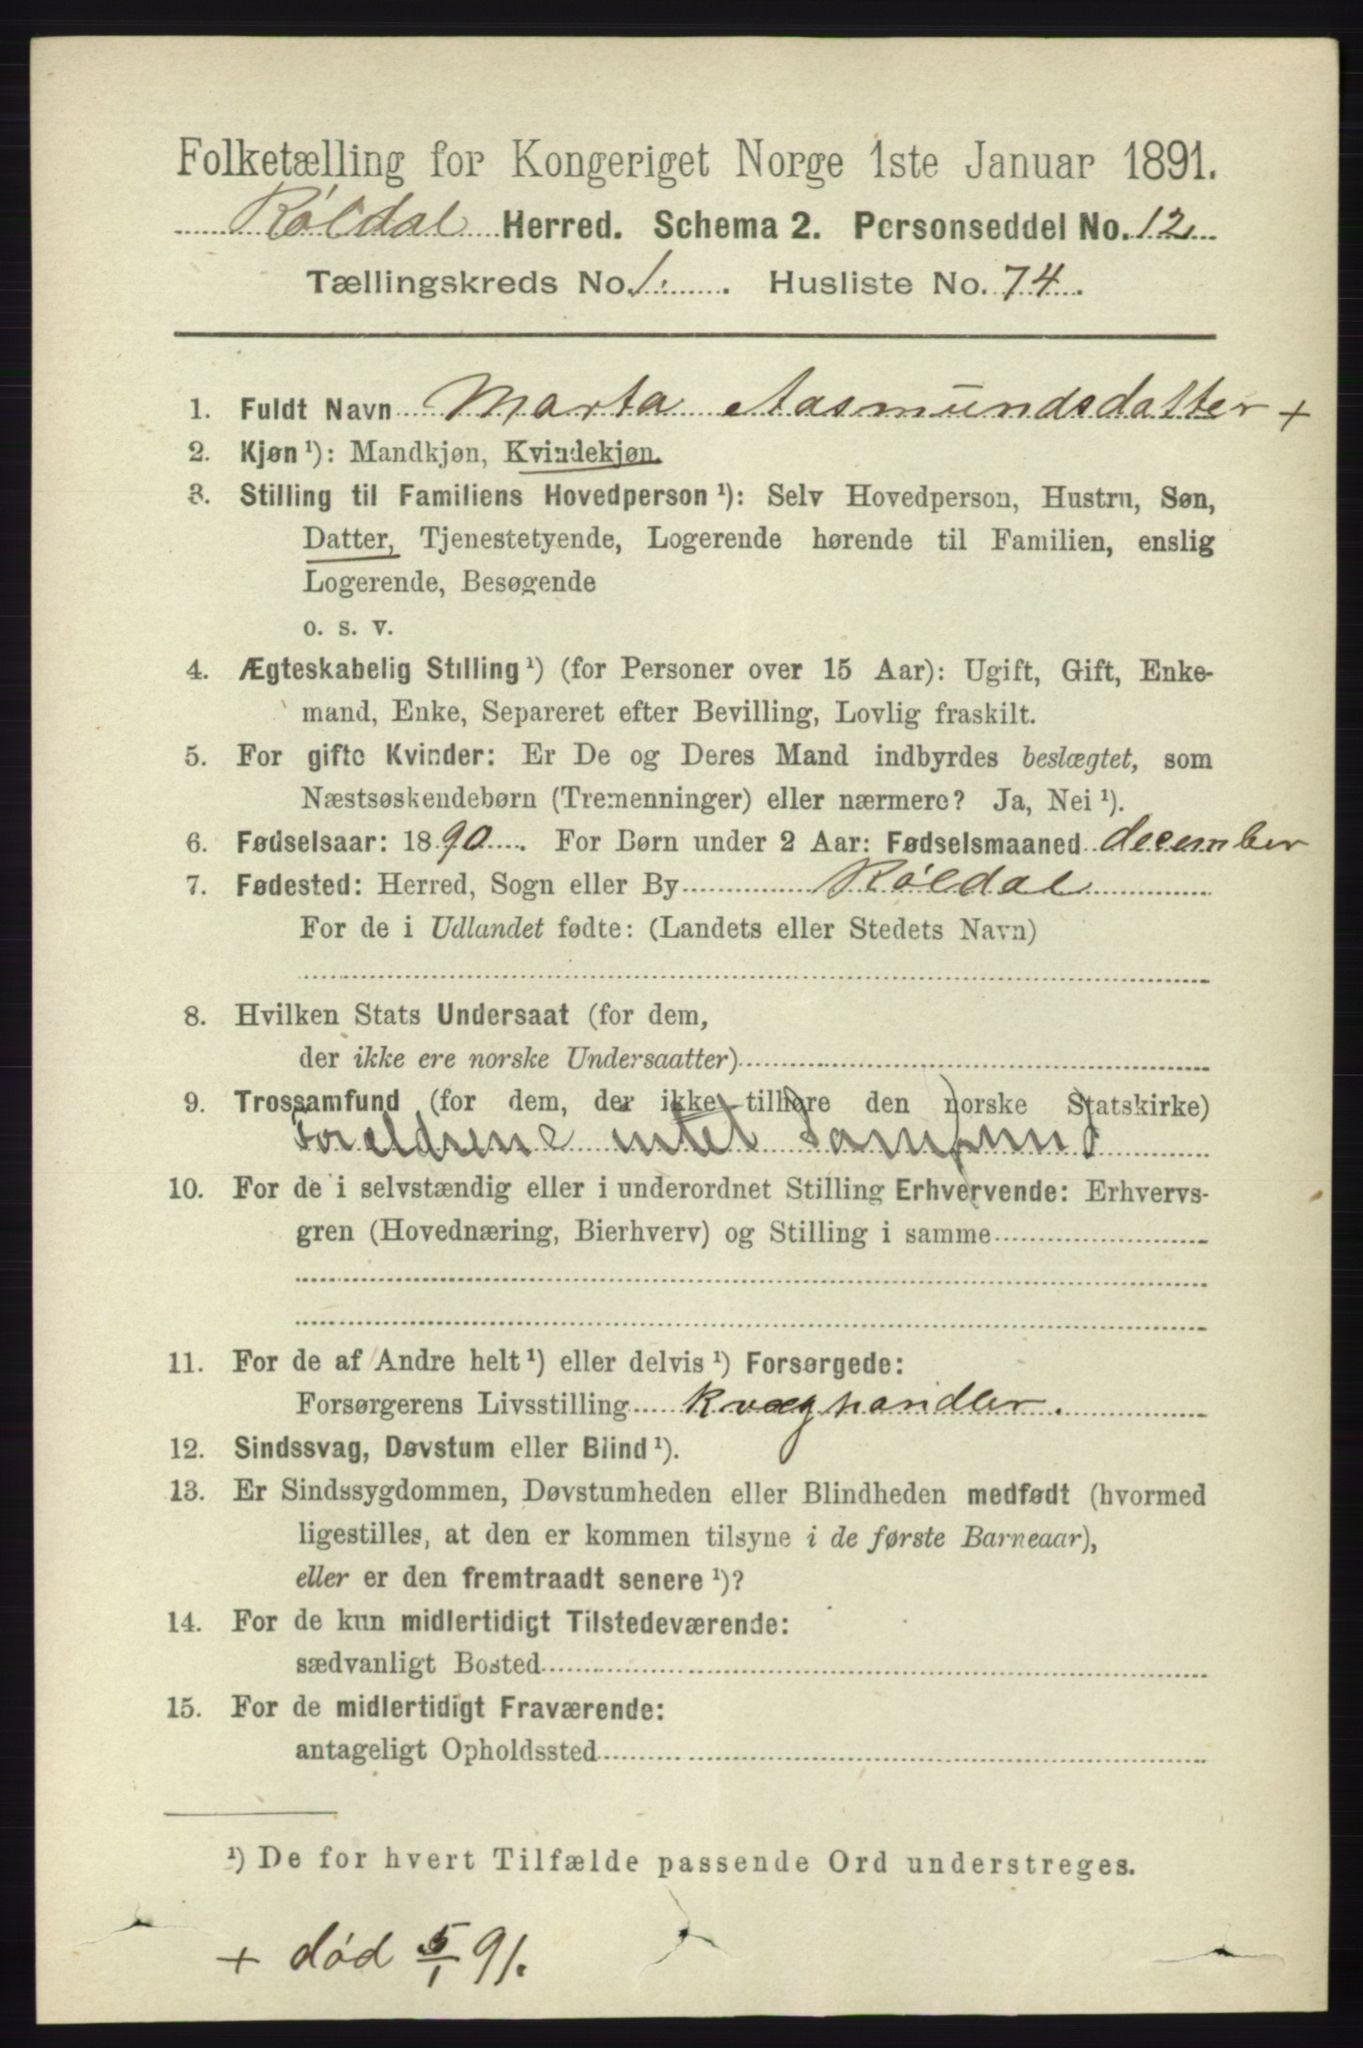 Folketælling for Kongeriget Norge 1ste Januar 1891.
Røldal Herred. Schema 2. Personseddel No. 12
Tællingskreds No. 1. Husliste No. 74.
1. Fuldt Navn Marta Aasmundsdatter +
2. Kjøn¹): Mandkjøn, Kvindekjøn.
3. Stilling til Familiens Hovedperson¹): Selv Hovedperson, Hustru, Søn,
Datter, Tjenestetyende, Logerende hørende til Familien, enslig
Logerende, Besøgende
o. s. v.
4. Ægteskabelig Stilling¹) (for Personer over 15 Aar): Ugift, Gift, Enke-
mand, Enke, Separeret efter Bevilling, Lovlig fraskilt.
5. For gifte Kvinder: Er De og Deres Mand indbyrdes beslægtet, som
Næstsøskendebørn (Tremenninger) eller nærmere? Ja, Nei¹).
6. Fødselsaar: 1890. For Børn under 2 Aar: Fødselsmaaned december
7. Fødested: Herred, Sogn eller By Røldal
For de i Udlandet fødte: (Landets eller Stedets Navn)
8. Hvilken Stats Undersaat (for dem,
der ikke ere norske Undersaatter)
9. Trossamfund (for dem, der ikke tilhøre den norske Statskirke)
Forældrene intet Samfund
10. For de i selvstændig eller i underordnet Stilling Erhvervende: Erhvervs-
gren (Hovednæring, Bierhverv) og Stilling i samme
11. For de af Andre helt¹) eller delvis¹) Forsørgede:
Forsørgerens Livsstilling Kvæghandler.
12. Sindssvag, Døvstum eller Blind¹).
13. Er Sindssygdommen, Døvstumheden eller Blindheden medfødt (hvormed
ligestilles, at den er kommen tilsyne i de første Barneaar),
eller er den fremtraadt senere¹)?
14. For de kun midlertidigt Tilstedeværende:
sædvanligt Bosted
15. For de midlertidigt Fraværende:
antageligt Opholdssted
¹) De for hvert Tilfælde passende Ord understreges.
+ død 5/1 91.